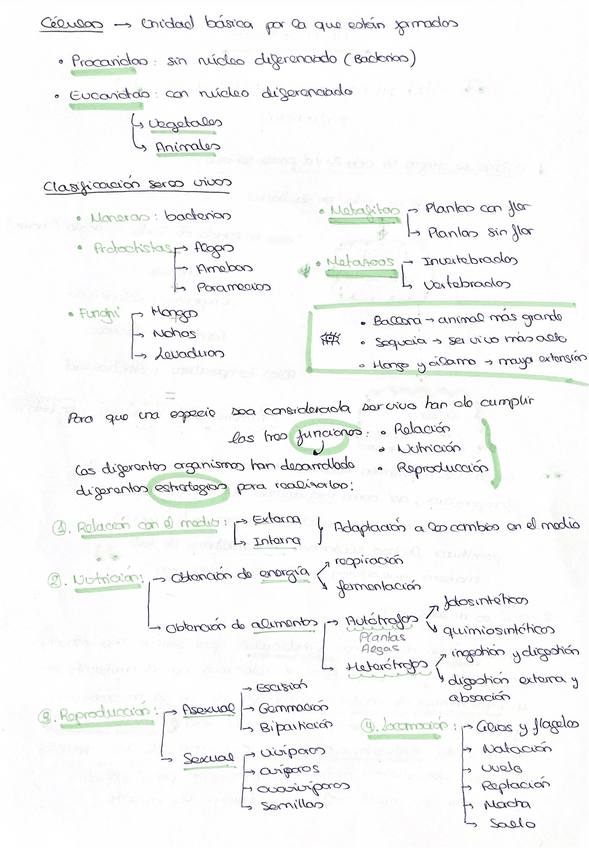 Células → Unidad básica por la que están formados
• Procariotas: sin núcleo diferenciado (Bacterias)
• Eucariotas: con núcleo diferenciado
↳ Vegetales
↳ Animales
Clasificación seres vivos
• Moneras: bacterias
• Protoctistas → Algas
→ Amebas
→ Paramecios
• Funghi → Hongos
→ Mohos
→ Levaduras
• Metafitas → Plantas con flor
→ Plantas sin flor
• Metazoos → Invertebrados
→ Vertebrados
• Ballena → animal más grande
• Sequoia → ser vivo más alto
• Hongo y álamo → maya extensión
Para que una especie sea considerada ser vivo han de cumplir
las tres funciones: • Relación
• Nutrición
• Reproducción
Los diferentes organismos han desarrollado
diferentes estrategias para realizarlas:
①. Relación con el medio: → Externa
→ Interna
Adaptación a los cambios en el medio
②. Nutrición: → Obtención de energía → respiración
→ fermentación
→ Obtención de alimentos → Autótrofos → fotosintéticos
Plantas
Algas
→ quimiosintéticos
→ Heterótrofos → ingestión y digestión
→ digestión externa y
absoción
③. Reproducción: → Asexual → Escisión
→ Gemmación
→ Bipartición
→ Sexual → Vivíparos
→ Ovíparos
→ Ovovivíparos
→ Semillas
④. Locomoción: → Cilios y flagelos
→ Natación
→ Vuelo
→ Reptación
→ Macha
→ Salto